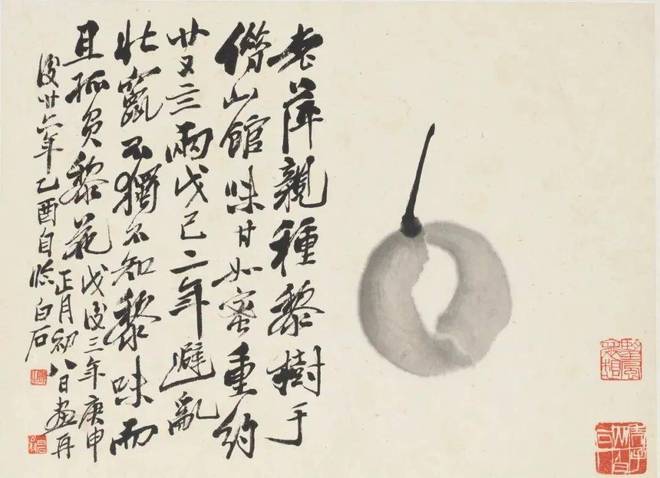 老萍親種黎樹于
借山館味甘如蜜重約
廿又三兩戊己二年避亂
北竄不獨不知黎味而
且孤負黎花
戊後三年庚申
正月初八日畫再
後廿六年乙酉自臨白石